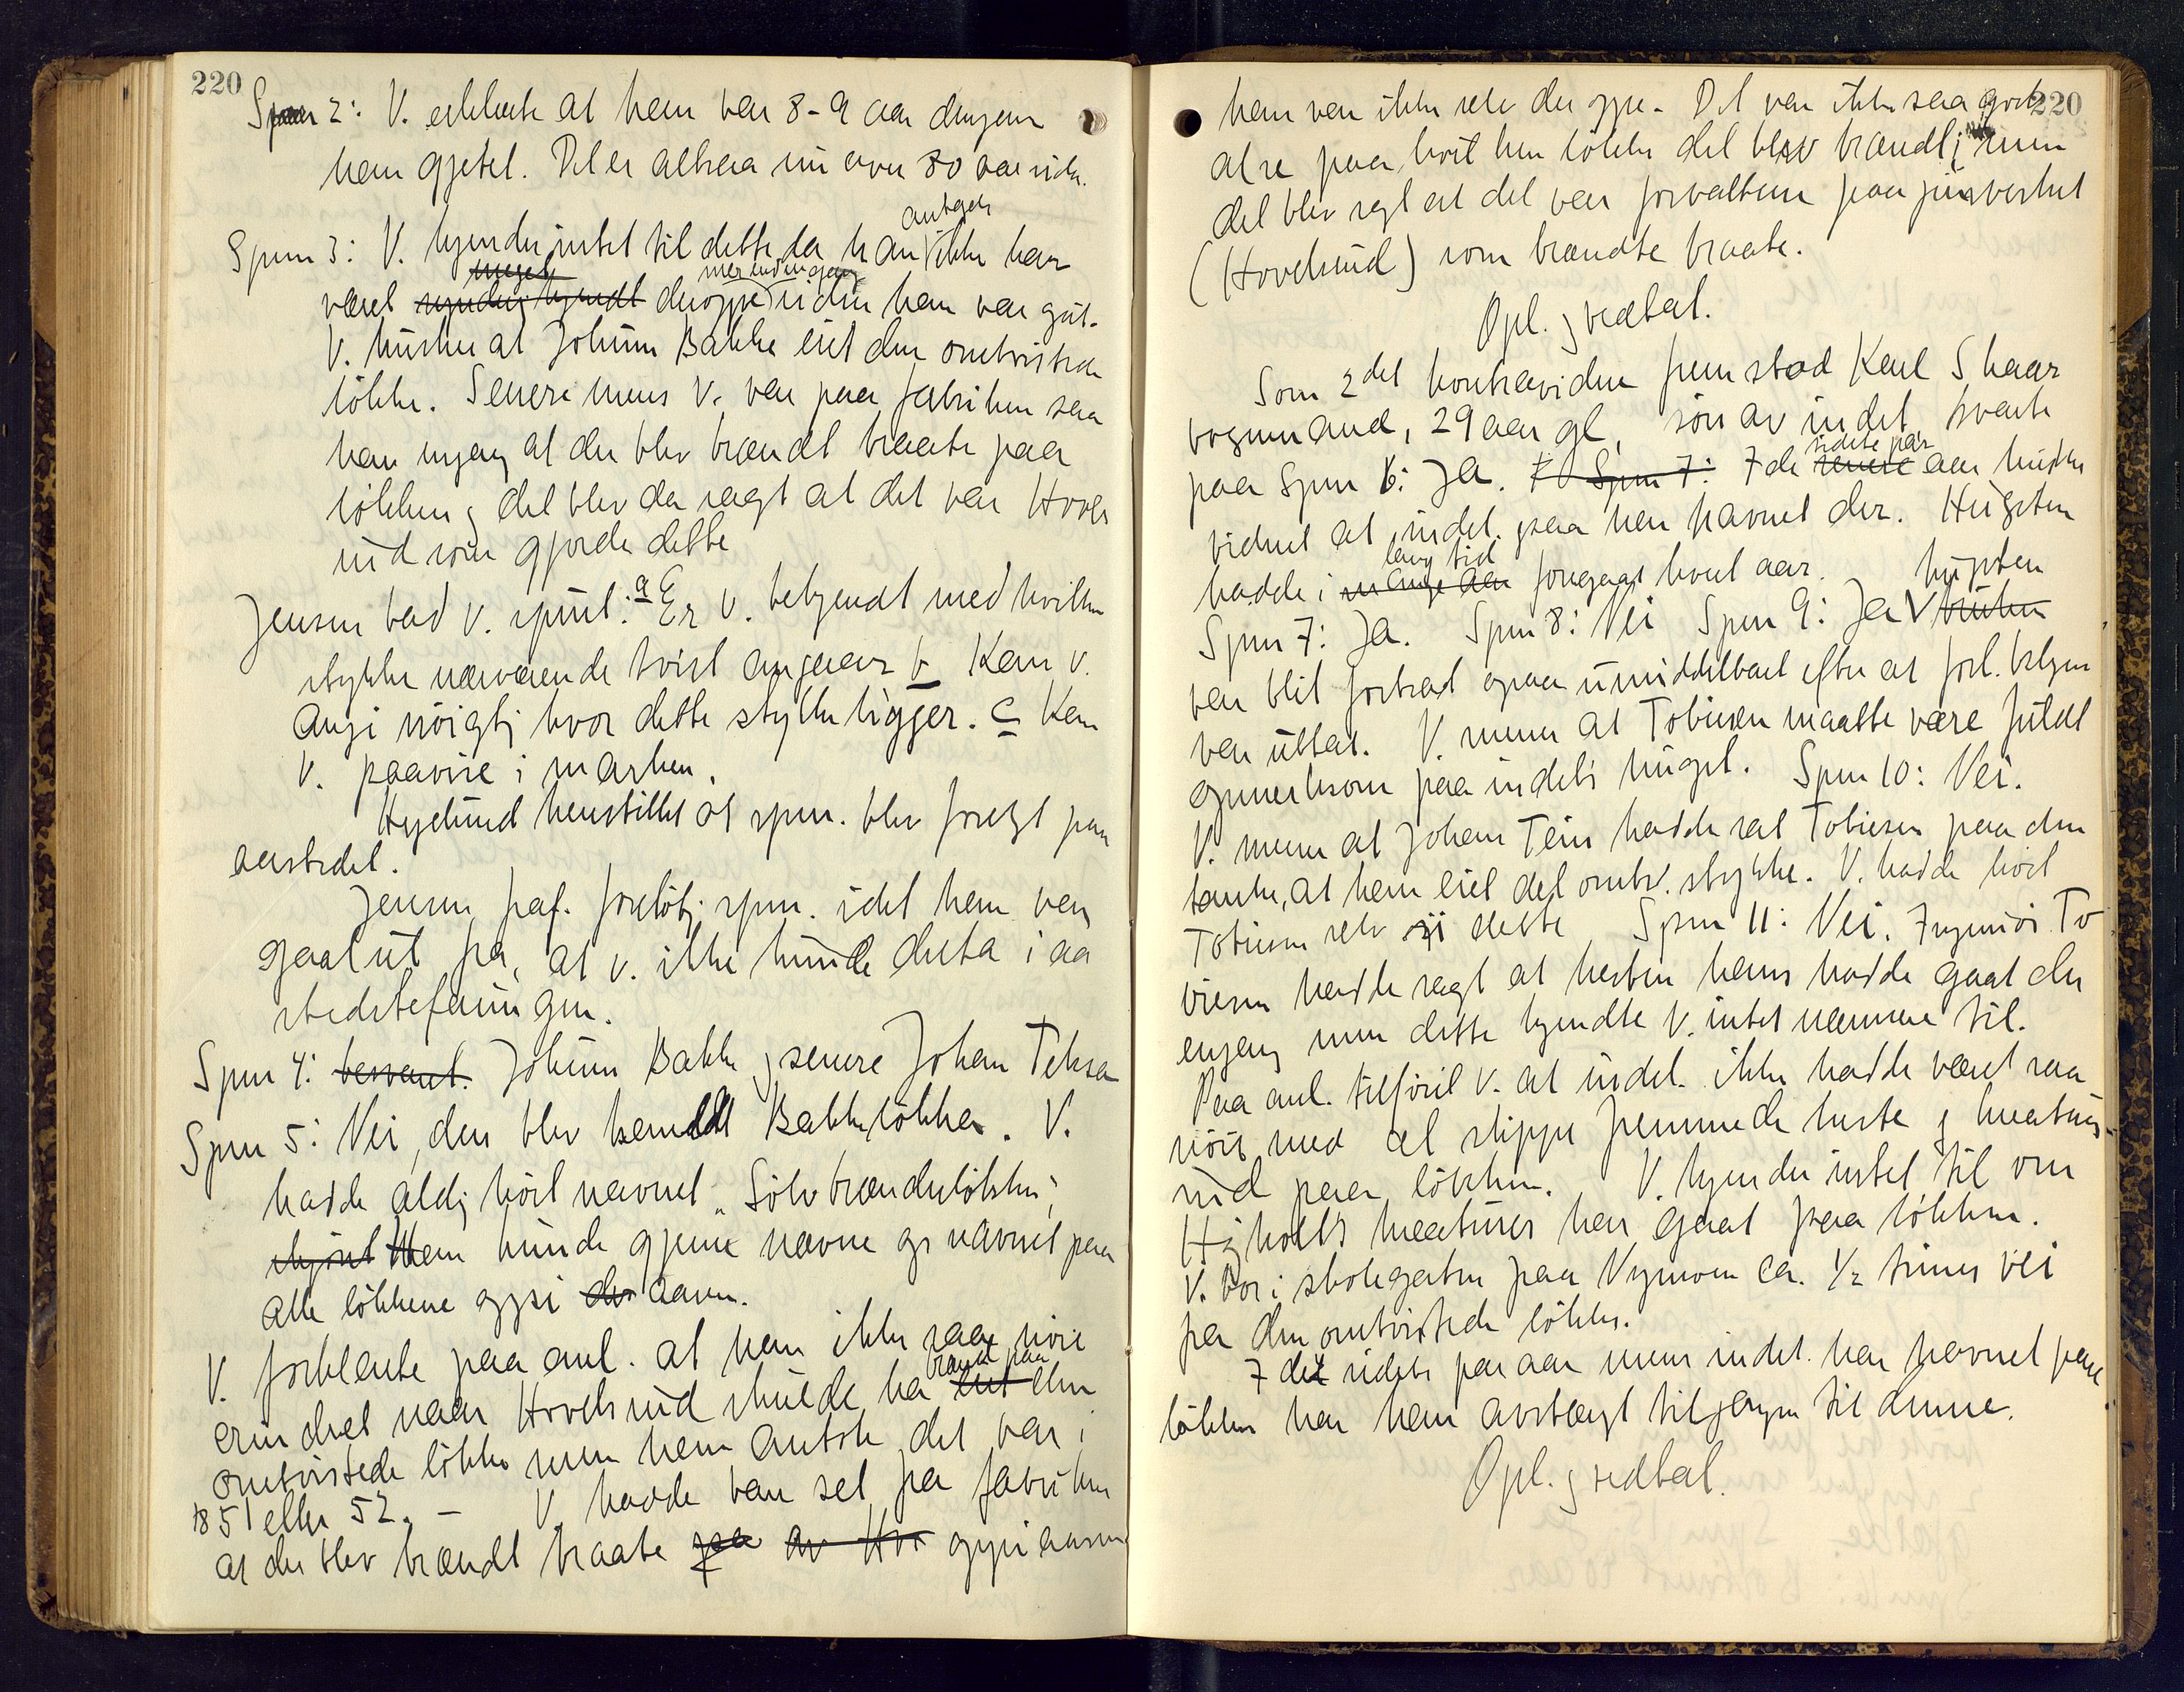 220
Spm 2: V. erklærte at han var 8-9 aar dengang
han gjetet. Det er altsaa nu over 80 aar siden.
antagelig
Spm 3: V. kjender intet til dette da han ikke har
meget mer end engang
været kjendt deroppe siden han var gut.
V. husker at Johan Bakke eiet den omtvistede
løkke. Senere mens V. var paa fabriken saa
han engang at der blev brændt braate paa
løkken, det blev da sagt at det var Hovels
rud som gjorde dette
Jensen bad V. spurt: a Er V. bekjendt med hvilket
stykke nærværende tvist angaar b Kan V.
angi nøigtig hvor dette stykke ligger. c Kan
V. paavise i marken.
Hyelund henstillet at spm. blev forelagt paa
aastedet.
Jensen fraf. foreløbig spm. idet han var
gaat ut fra, at V. ikke kunde delta i aa
stedsbefaringen.
Spm 4: besvaret. Johan Bakke og senere Johan Teksa
Spm 5: Nei, den blev kaldt Bakkeløkka. V.
hadde aldrig hørt navnet "Sølvbrændeløkken",
skjønt Han kunde gjerne nævne op navnet paa
alle løkkene oppi der aasen.
V. forklarte paa anl. at han ikke saa nøie
brændt paa
erindret naar Hovelsrud skulde ha eiet den
omtvistede løkke men han antok det var i
1851 eller 52. - V. hadde bare set fra fabriken
at der blev brændt braate paa av Hov oppi aasen
220
han var ikke selv der oppe. Det var ikke saa godt
at se paa, hvilken løkke det blev brændt, men
det blev sagt at det var forvalteren paa fusverket
(Hovelsrud) som brændte braate.
Opl. og vedtat.
Som 2det kontravidne fremstod Karl Skaar
vognmand, 29 aar gl, søn av indst, svarte
sidste par
paa Spm 6: Ja. Spm 7: I de senere aar husker
vidnet at indst. paa har havnet der. Hugsten
lang tid
hadde i mange aar foregaat hvert aar. hugsten
Spm 7: Ja. Spm 8: Nei Spm 9: Ja V bruken
var blit fortsat ogsaa umiddelbart efter at forl. klagen
var uttat. V. mener at Tobiesen maatte være fuldt
opmerksom paa indst's hugst. Spm 10: Nei.
V. mener at Johan Tein hadde sat Tobiesen paa den
tanke, at han eiet det omtv. stykke. V. hadde hørt
Tobiesen selv si dette Spm 11: Nei. Ingeniør To
biesen hadde sagt at hesten hans hadde gaat der
engang men dette kjendte V. intet nærmere til.
Paa anl. tilføiet V. at indst. ikke hadde været saa
nøie med at slippe fremmede heste og kreatur
ind paa løkken. V. kjender intet til om
Hyholts kreaturer har gaat paa løkken.
V. bor i skolegaten paa Nymoen ca. 1/2 times vei
fra den omtvistede løkke.
I det sidste par aar mens indst. har havnet paa
løkken har han avstængt tilgangen til denne.
Opl. og vedtat.